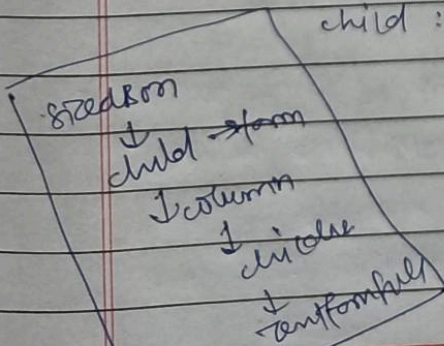 child :
sizedBox
↓
child → form
↓ column
↓
childre
↓
Textformfield